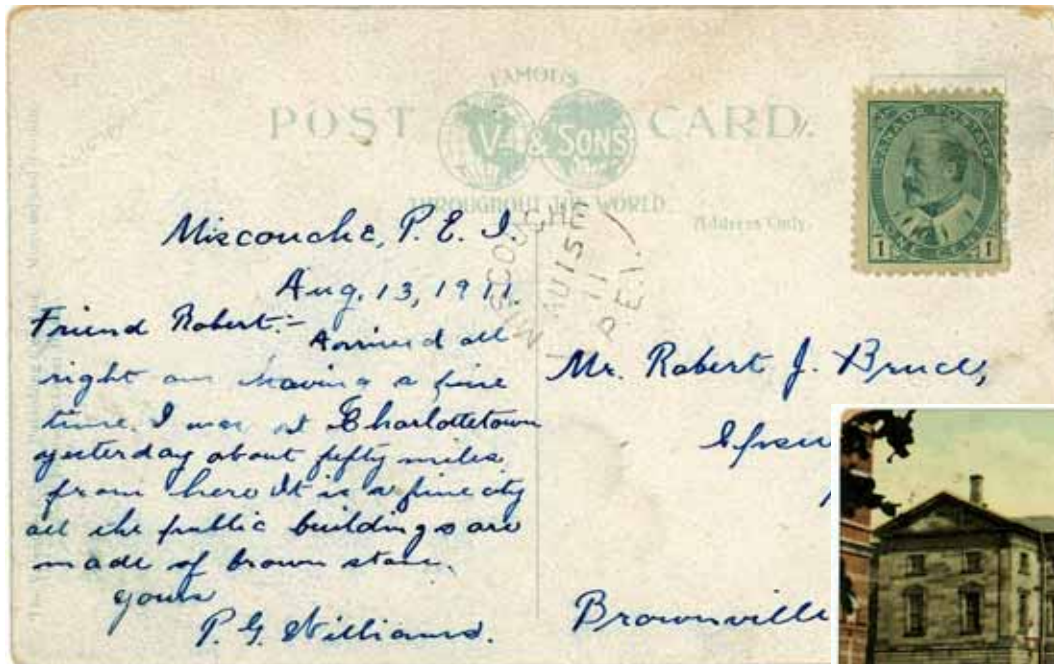 FAMOUS
POST CARD.
V & SONS
THROUGHOUT THE WORLD
Address Only.
CANADA POSTAGE
1 ONE CENT 1
MISCOUCHE
AU 15
11
P.E.I.
Miscouche, P. E. I.
Aug. 13, 1911.
Friend Robert:-
Arrived all
right am having a fine
time. I was at Charlottetown
yesterday about fifty miles
from here It is a fine city
all the public buildings are
made of brown stone.
Yours
P. G. Williams.
Mr. Robert J. Bruce,
Brownville